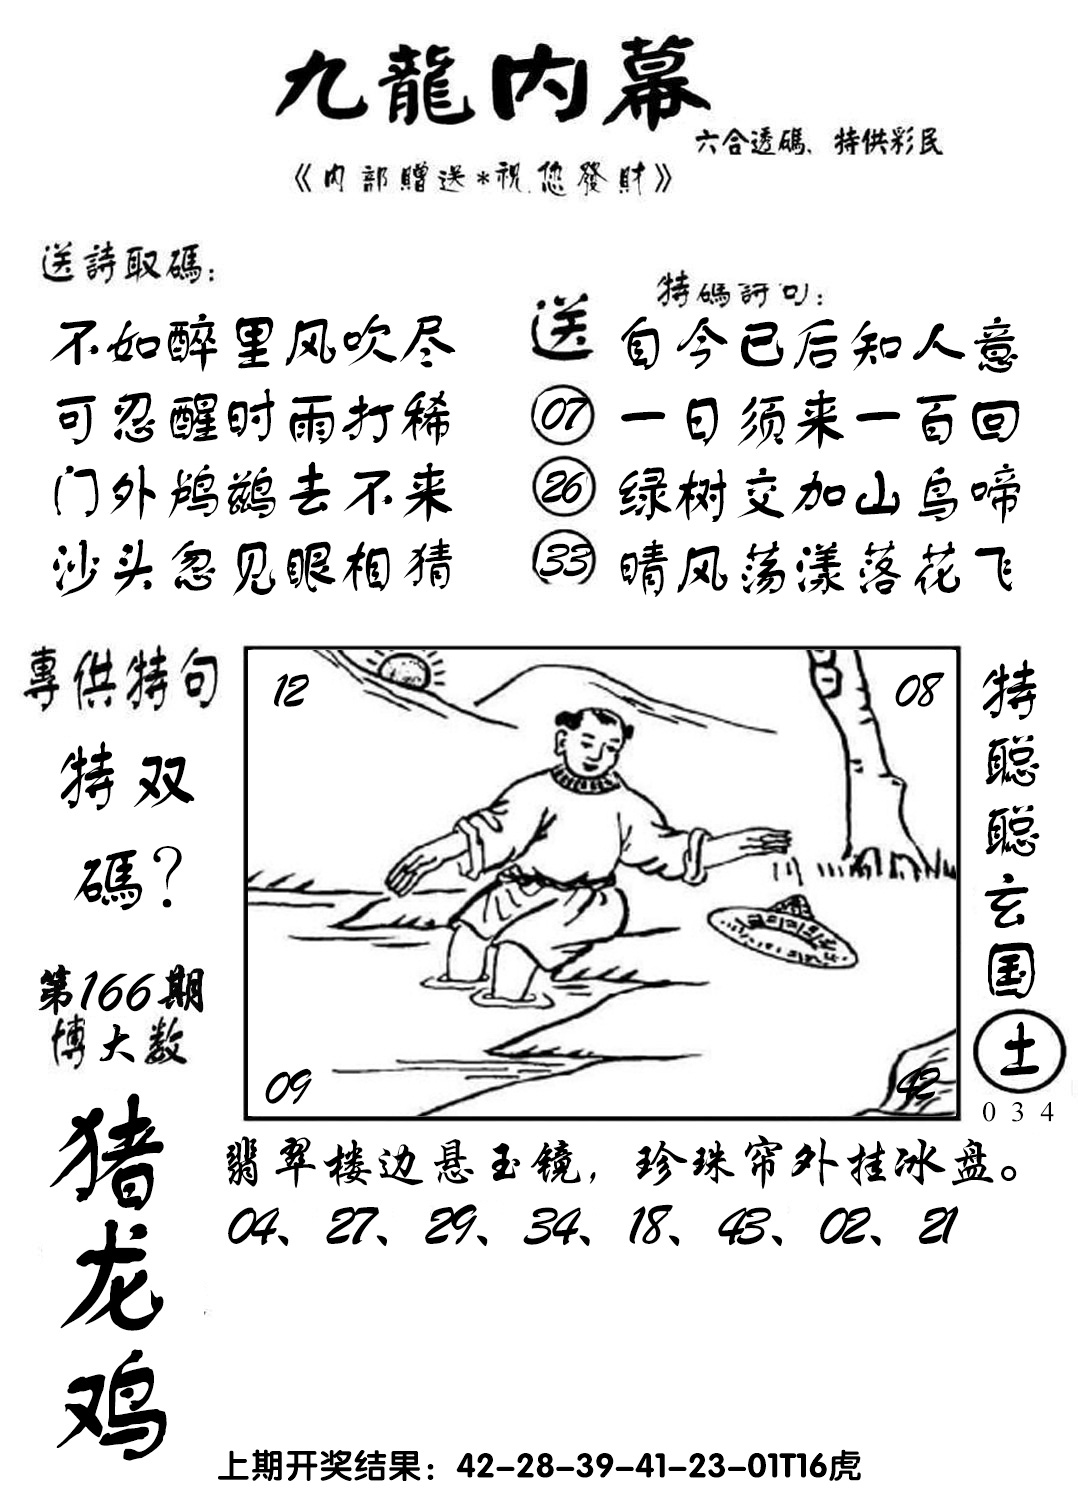 九龍内幕
六合透碼、特供彩民
《内部贈送*祝您發財》
送詩取碼：
不如醉里风吹尽
可忍醒时雨打稀
门外鸬鹚去不来
沙头忽见眼相猜
特碼詩句：
送
07
26
33
自今已后知人意
一日须来一百回
绿树交加山鸟啼
晴风荡漾落花飞
專供特句
特双
碼？
第166期
博大数
猪
龙
鸡
12
08
09
42
特
聪
聪
玄
国
土
034
翡翠楼边悬玉镜，珍珠帘外挂冰盘。
04、27、29、34、18、43、02、21
上期开奖结果：42-28-39-41-23-01T16虎